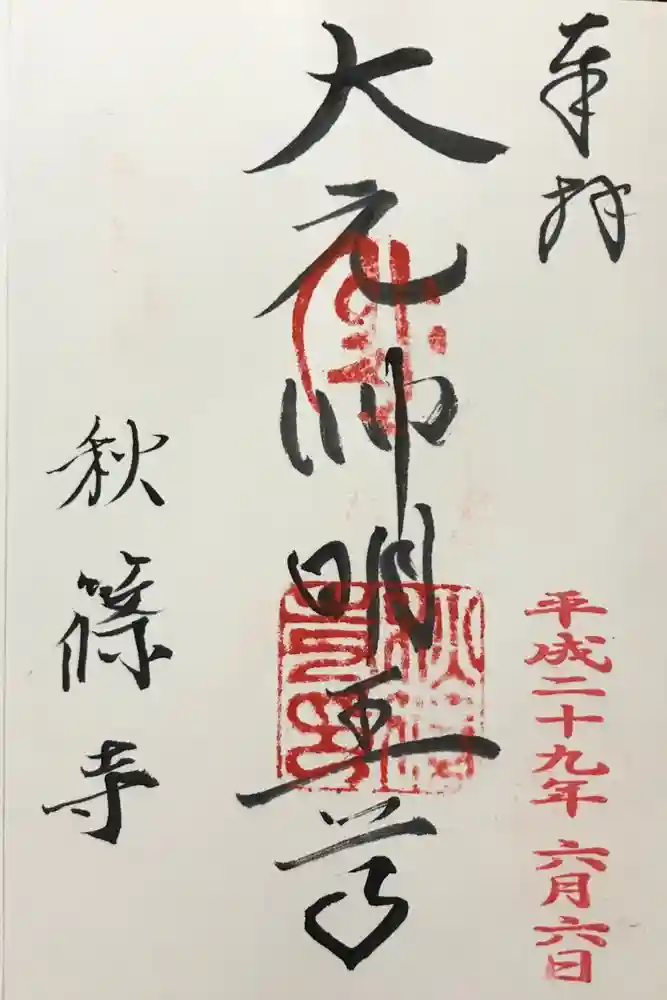 奉拝
平成二十九年 六月六日
大元帥明王尊
秋篠寺
秋篠寺印